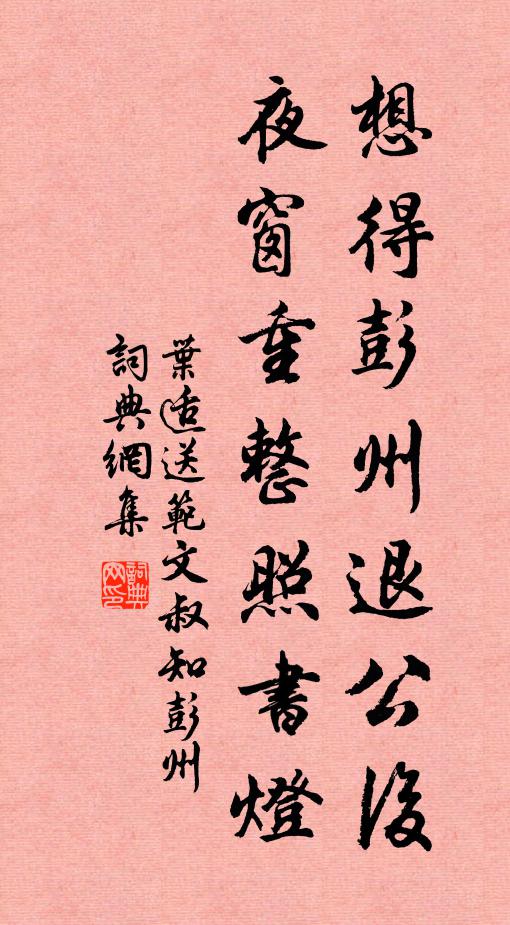 想得彭州退公後
夜窗重整照書燈
葉适送範文叔知彭州
詞典網集
詞典网印